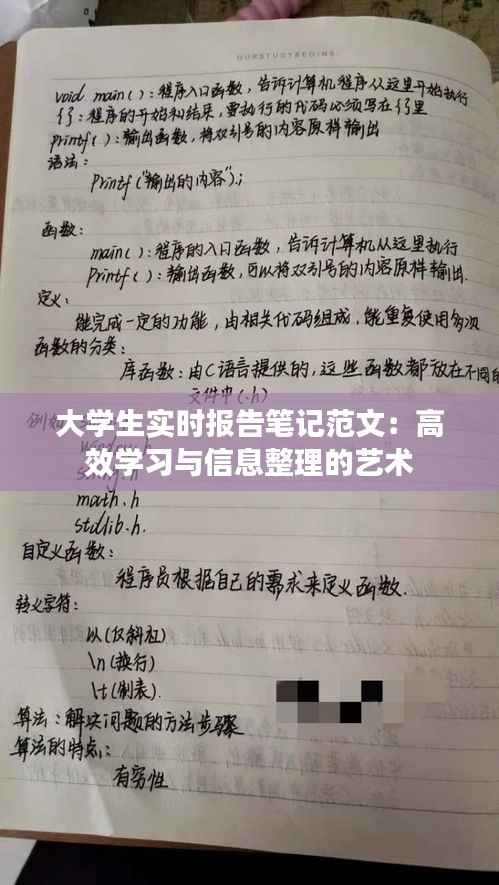 OURSTUDYBEGINS
void main()：程序入口函数，告诉计算机程序从这里开始执行
{}：程序的开始和结束，要执行的代码必须写在{}里
printf()：输出函数，将双引号的内容原样输出
语法：
Printf("输出的内容");
函数：
main()：程序的入口函数，告诉计算机从这里执行
Printf()：输出函数，可以将双引号的内容原样输出.
定义：
能完成一定的功能，由相关代码组成，能重复使用多次
函数的分类：
库函数：由C语言提供的，这些函数都放在不同的
文件中(.h)
大学生实时报告笔记范文：高
效学习与信息整理的艺术
math.h
stdlib.h.
自定义函数：
程序员根据自己的需求来定义函数.
转义字符：
\n(换行)
\t(制表).
算法：解决问题的方法步骤
算法的特点：
有穷性